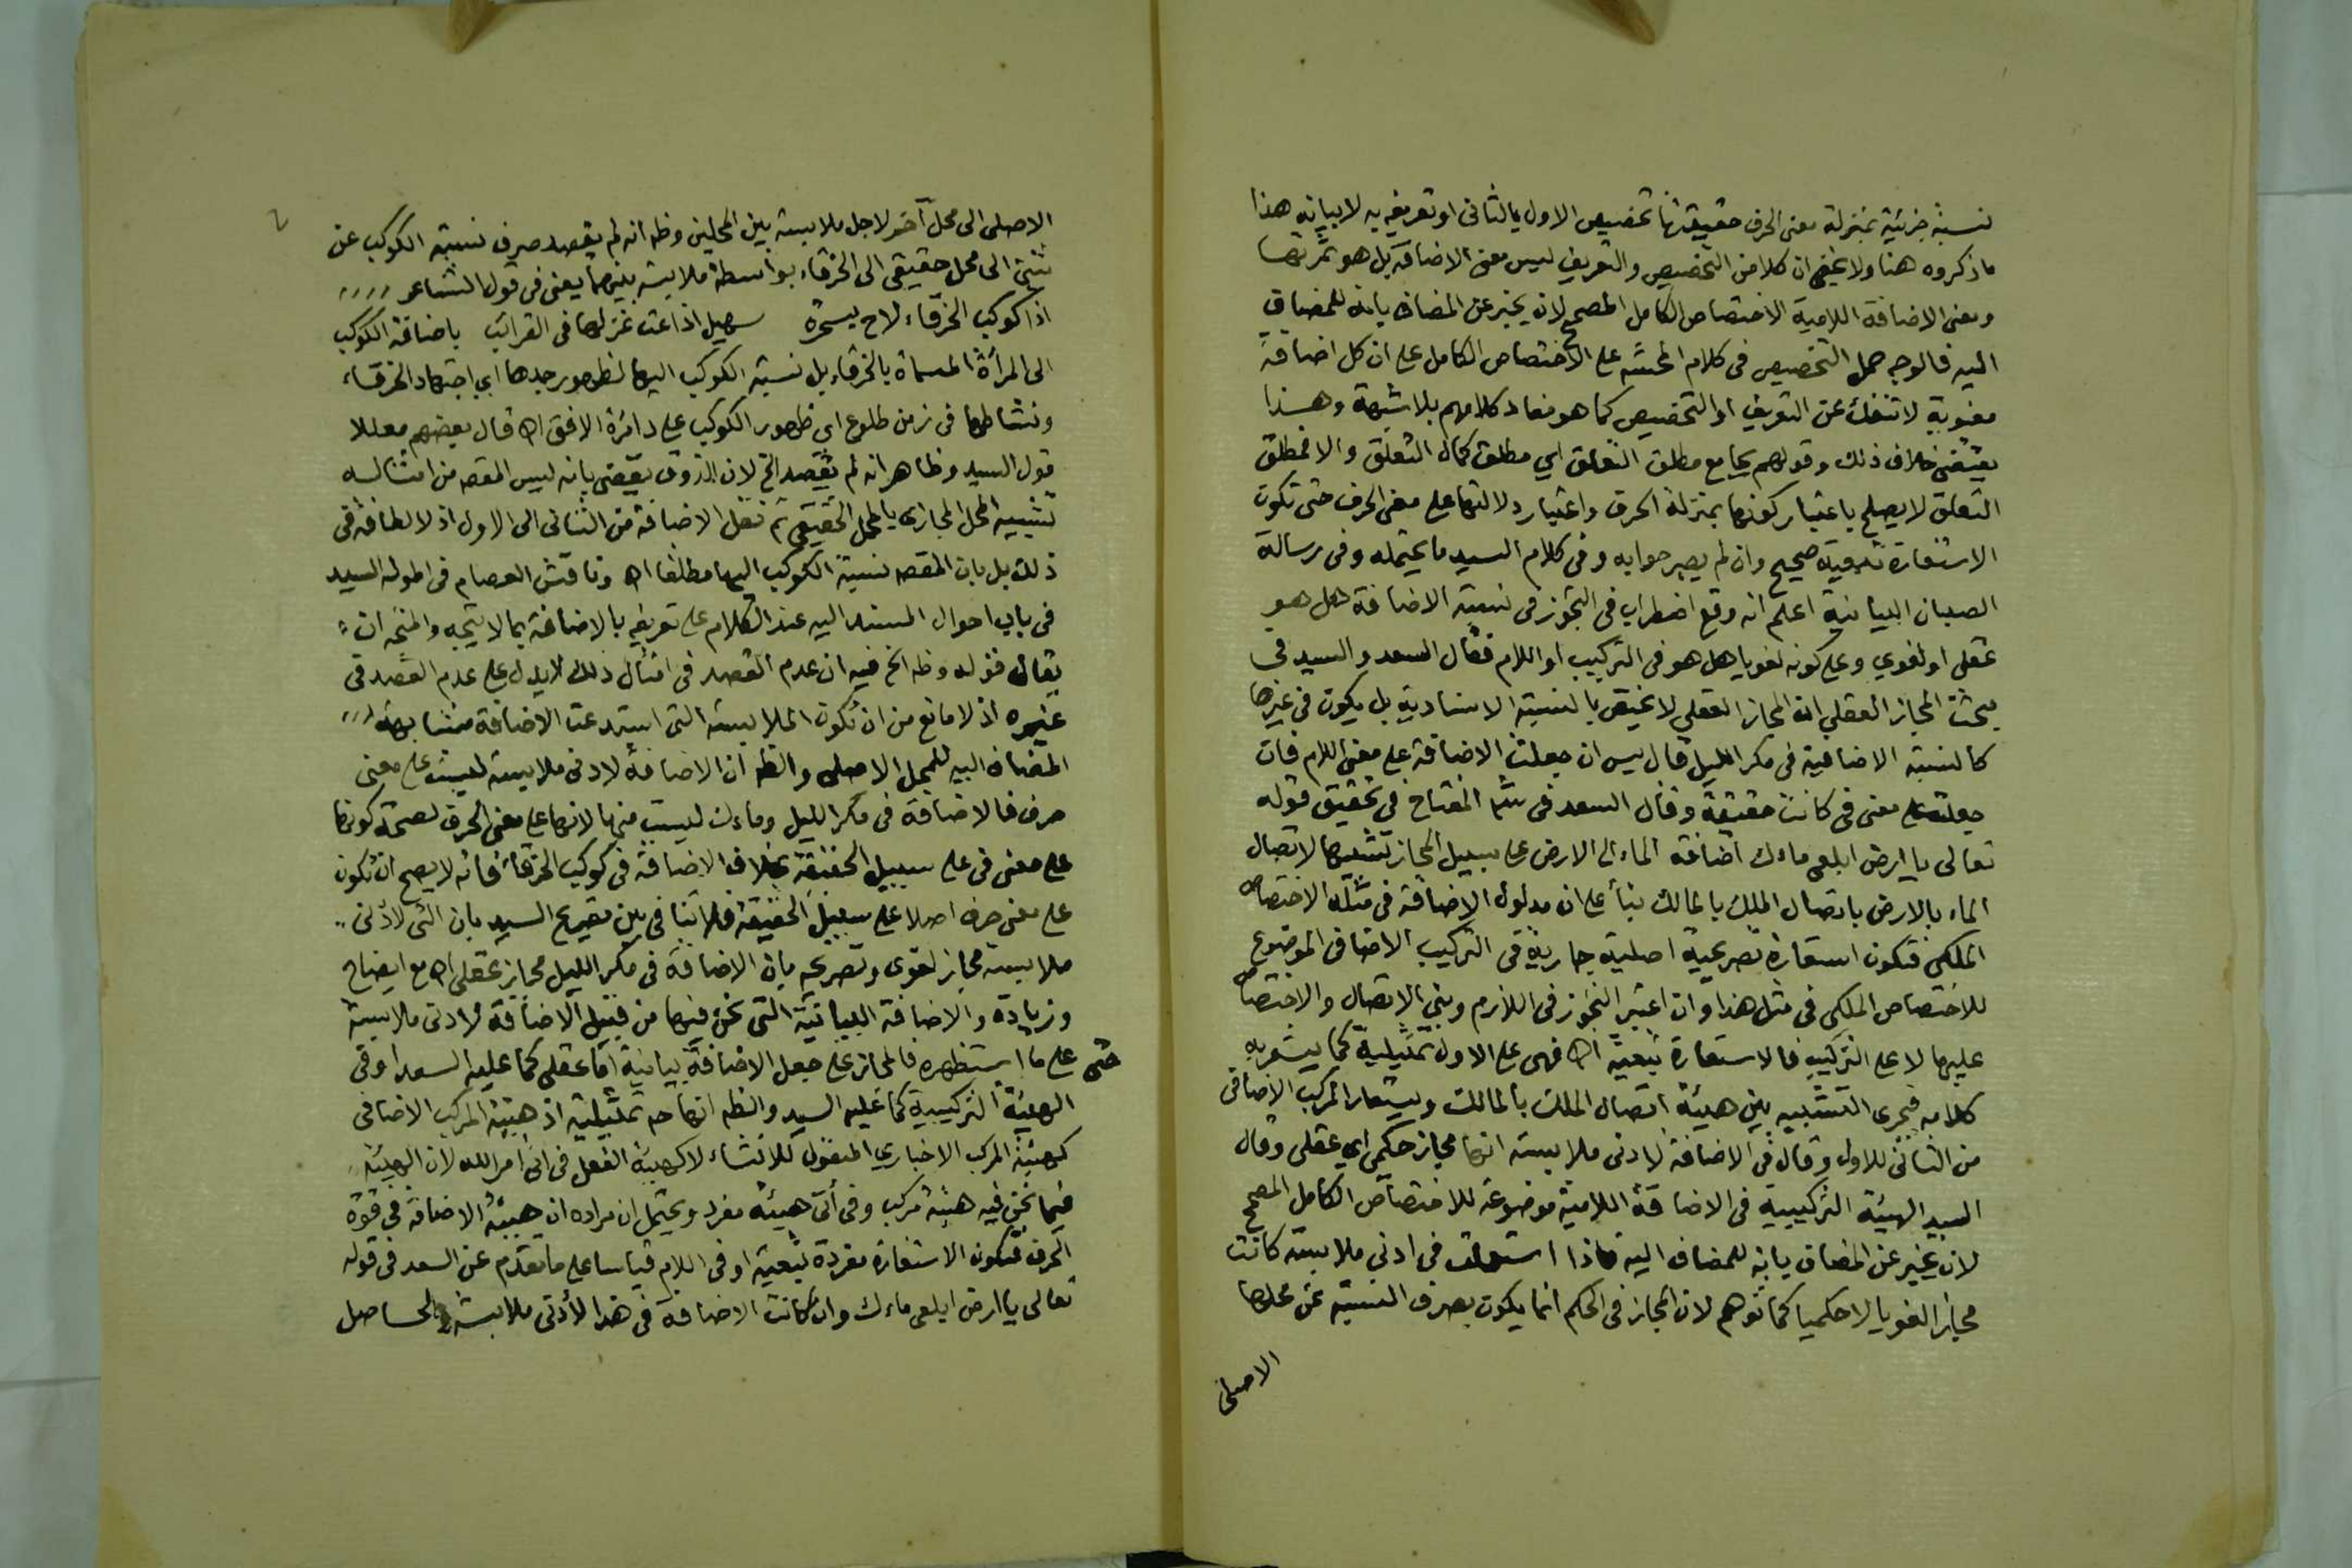 نسبة جزئية بمنزلة معنى الحرف حقيقتها تخصيص الاول بالثانى او تعريفه به لا بيانه هذا
ما ذكروه هنا ولا يخفى ان كلا من التخصيص والتعريف ليس معنى الاضافة بل هو ثمرتها
ومعنى الاضافة اللامية الاختصاص الكامل المصحح لان يخبر عن المضاف بانه للمضاف
اليه فالوجه حمل التخصيص فى كلام المحشى على الاختصاص الكامل على ان كل اضافة
معنوية لا تنفك عن التعريف او التخصيص كما هو مفاد كلامهم بلا شبهة وهذا
يقتضى خلاف ذلك وقولهم بجامع مطلق التعلق اي مطلق كمال التعلق والا فمطلق
التعلق لا يصلح باعتبار كونها بمنزلة الحرف واعتبار دلالتها على معنى الحرف حتى تكون
الاستعارة تبعية صحيح وان لم يصبر جوابه وفى كلام السيد ما يحتمله وفى رسالة
الصبان البيانية اعلم انه وقع اضطراب فى التجوز فى نسبة الاضافة هل هو
عقلى او لغوي وعلى كونه لغويا هل هو فى التركيب او اللام فقال السعد والسيد فى
مبحث المجاز العقلي ان المجاز العقلي لا يختص بالنسبة الاسنادية بل يكون فى غيرها
كالنسبة الاضافية فى مكر الليل قال يس ان جعلت الاضافة على معنى اللام فان
جعلت على معنى فى كانت حقيقة وقال السعد فى شرح المفتاح فى تحقيق قوله
تعالى يا ارض ابلعى ماءك اضافة الماء الى الارض على سبيل المجاز تشبيها لاتصال
الماء بالارض باتصال الملك بالمالك بناء على ان مدلول الاضافة فى مثله الاختصاص
الملكى فتكون استعارة تصريحية اصلية جارية فى التركيب الاضافى الموضوع
للاختصاص الملكى فى مثل هذا وان اعتبر التجوز فى اللازم وبنى الاتصال والاختصاص
عليها لا على التركيب فالاستعارة تبعية اه فهى على الاول تمثيلية كما يشعر به
كلامه فجرى التشبيه بين هيئة اتصال الملك بالمالك ويستعار المركب الاضافى
من الثانى للاول وقال فى الاضافة لادنى ملابسة انها مجاز حكمى اي عقلى وقال
السيد الهيئة التركيبية فى الاضافة اللامية موضوعة للاختصاص الكامل المصحح
لان يخبر عن المضاف بانه للمضاف اليه فاذا استعملت فى ادنى ملابسة كانت
مجازا لغويا لا حكميا كما توهم لان المجاز فى الحكم انما يكون بصرف النسبة عن محلها
الاصلى
الاصلى الى محل آخر لاجل ملابسة بين المحلين وظ انه لم يقصد صرف نسبة الكوكب عن
شئ الى محل حقيقى الى الخرقاء بواسطة ملابسة بينهما يعنى فى قول الشاعر
اذا كوكب الخرقاء لاح بسحرة سهيل اذاعت غزلها فى القرائب باضافة الكوكب
الى المرأة المسماة بالخرقاء بل نسبة الكوكب اليها لظهور جدها اي اجتهاد الخرقاء
ونشاطها فى زمن طلوع اي ظهور الكوكب على دائرة الافق اه قال بعضهم معللا
قول السيد وظاهر انه لم يقصد الخ لان الذوق يقضى بانه ليس المقصد من امثاله
تشبيه المحل المجازى بالمحل الحقيقى ثم نقل الاضافة من الثانى الى الاول اذ لا لطافة فى
ذلك بل بان المقصد نسبة الكوكب اليها مطلقا اه وناقش العصام فى اطوله السيد
فى باب احوال المسند اليه عند الكلام على تعريفه بالاضافة بما لا يتجه والمتجه ان
يقال قوله وظ الخ فيه ان عدم القصد فى امثال ذلك لا يدل على عدم القصد فى
غيره اذ لا مانع من ان تكون الملابسة التى استدعت الاضافة مشابهة
المضاف اليه للمحل الاصلى والظ ان الاضافة لادنى ملابسة ليست على معنى
حرف فالاضافة فى مكر الليل وماءك ليست منها لانها على معنى الحرف لصحة كونها
على معنى فى على سبيل الحقيقة بخلاف الاضافة فى كوكب الخرقاء فانه لا يصح ان تكون
على معنى حرف اصلا على سبيل الحقيقة فلا تنافى بين تصريح السيد بان التى لادنى
ملابسة مجاز لغوى وتصريحه بان الاضافة فى مكر الليل مجاز عقلى اه مع ايضاح
وزيادة والاضافة البيانية التى نحن فيها من قبيل الاضافة لادنى ملابسة
حتى على ما استظهره فالمجاز على جعل الاضافة بيانية اما عقلى كما عليه السعد او فى
الهيئة التركيبية كما عليه السيد والظ انها ح تمثيلية اذ هيئة المركب الاضافى
كهيئة المركب الاخباري المنقول للانشاء لا كهيئة الفعل فى اتى امر الله لان الهيئة
فيما نحن فيه هيئة مركب وفى أتى هيئة مفرد ويحتمل ان مراده ان هيئة الاضافة فى قوة
الحرف فتكون الاستعارة مفردة تبعية او فى اللام قياسا على ما تقدم عن السعد فى قوله
تعالى يا ارض ابلعى ماءك وان كانت الاضافة فى هذا لأدنى ملابسة والحاصل